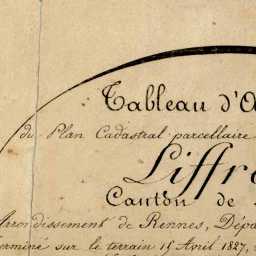 Tableau d'A
du Plan Cadastral parcellaire
Liffr
Canton de
Arrondissement de Rennes, Dépa
erminé sur le terrain 15 Avril 1827,